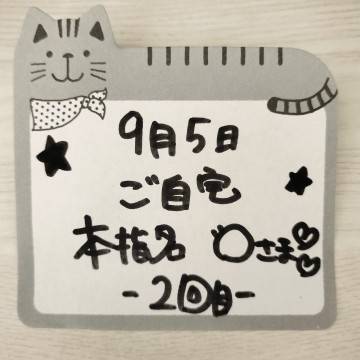 9月5日
ご自宅
本指名 〇さま♡♡
-2回目-